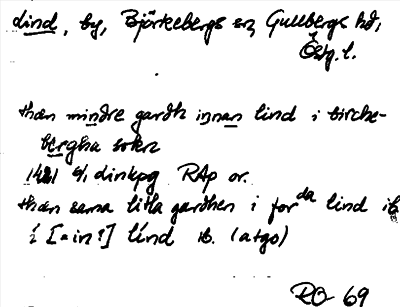 Lind, by, Björkebergs sn, Gullbergs hd,
Östg. l.
than mindre gardh innan lind i birche-
bergha sokn
1421 5/1 Linkpg RAp or.
than sama litla gardhen i for da lind ib.
i [= in?] lind ib. (atgo)
RO 69